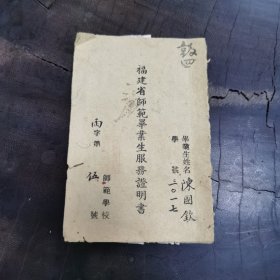 畢業生姓名 陳國欽
學號 二〇一七
福建省師範畢業生服務證明書
師範學校
丙字第 伍 號